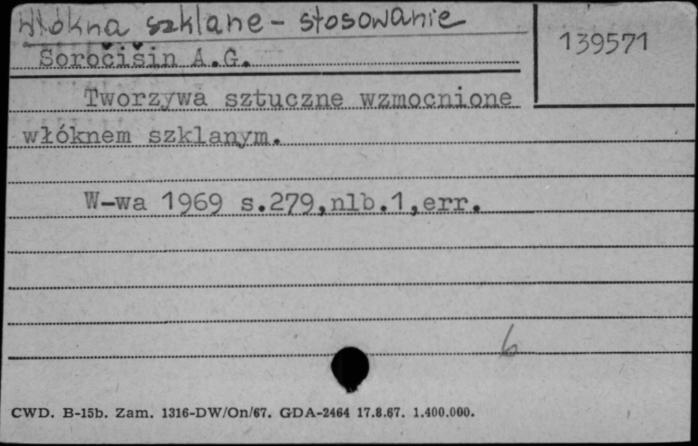 Włókna szklane - stosowanie
139571
Soročišin A.G.
Tworzywa sztuczne wzmocnione
włóknem szklanym.
W-wa 1969 s.279,nlb.1,err.
6
CWD. B-15b. Zam. 1316-DW/On/67. GDA-2464 17.8.67. 1.400.000.